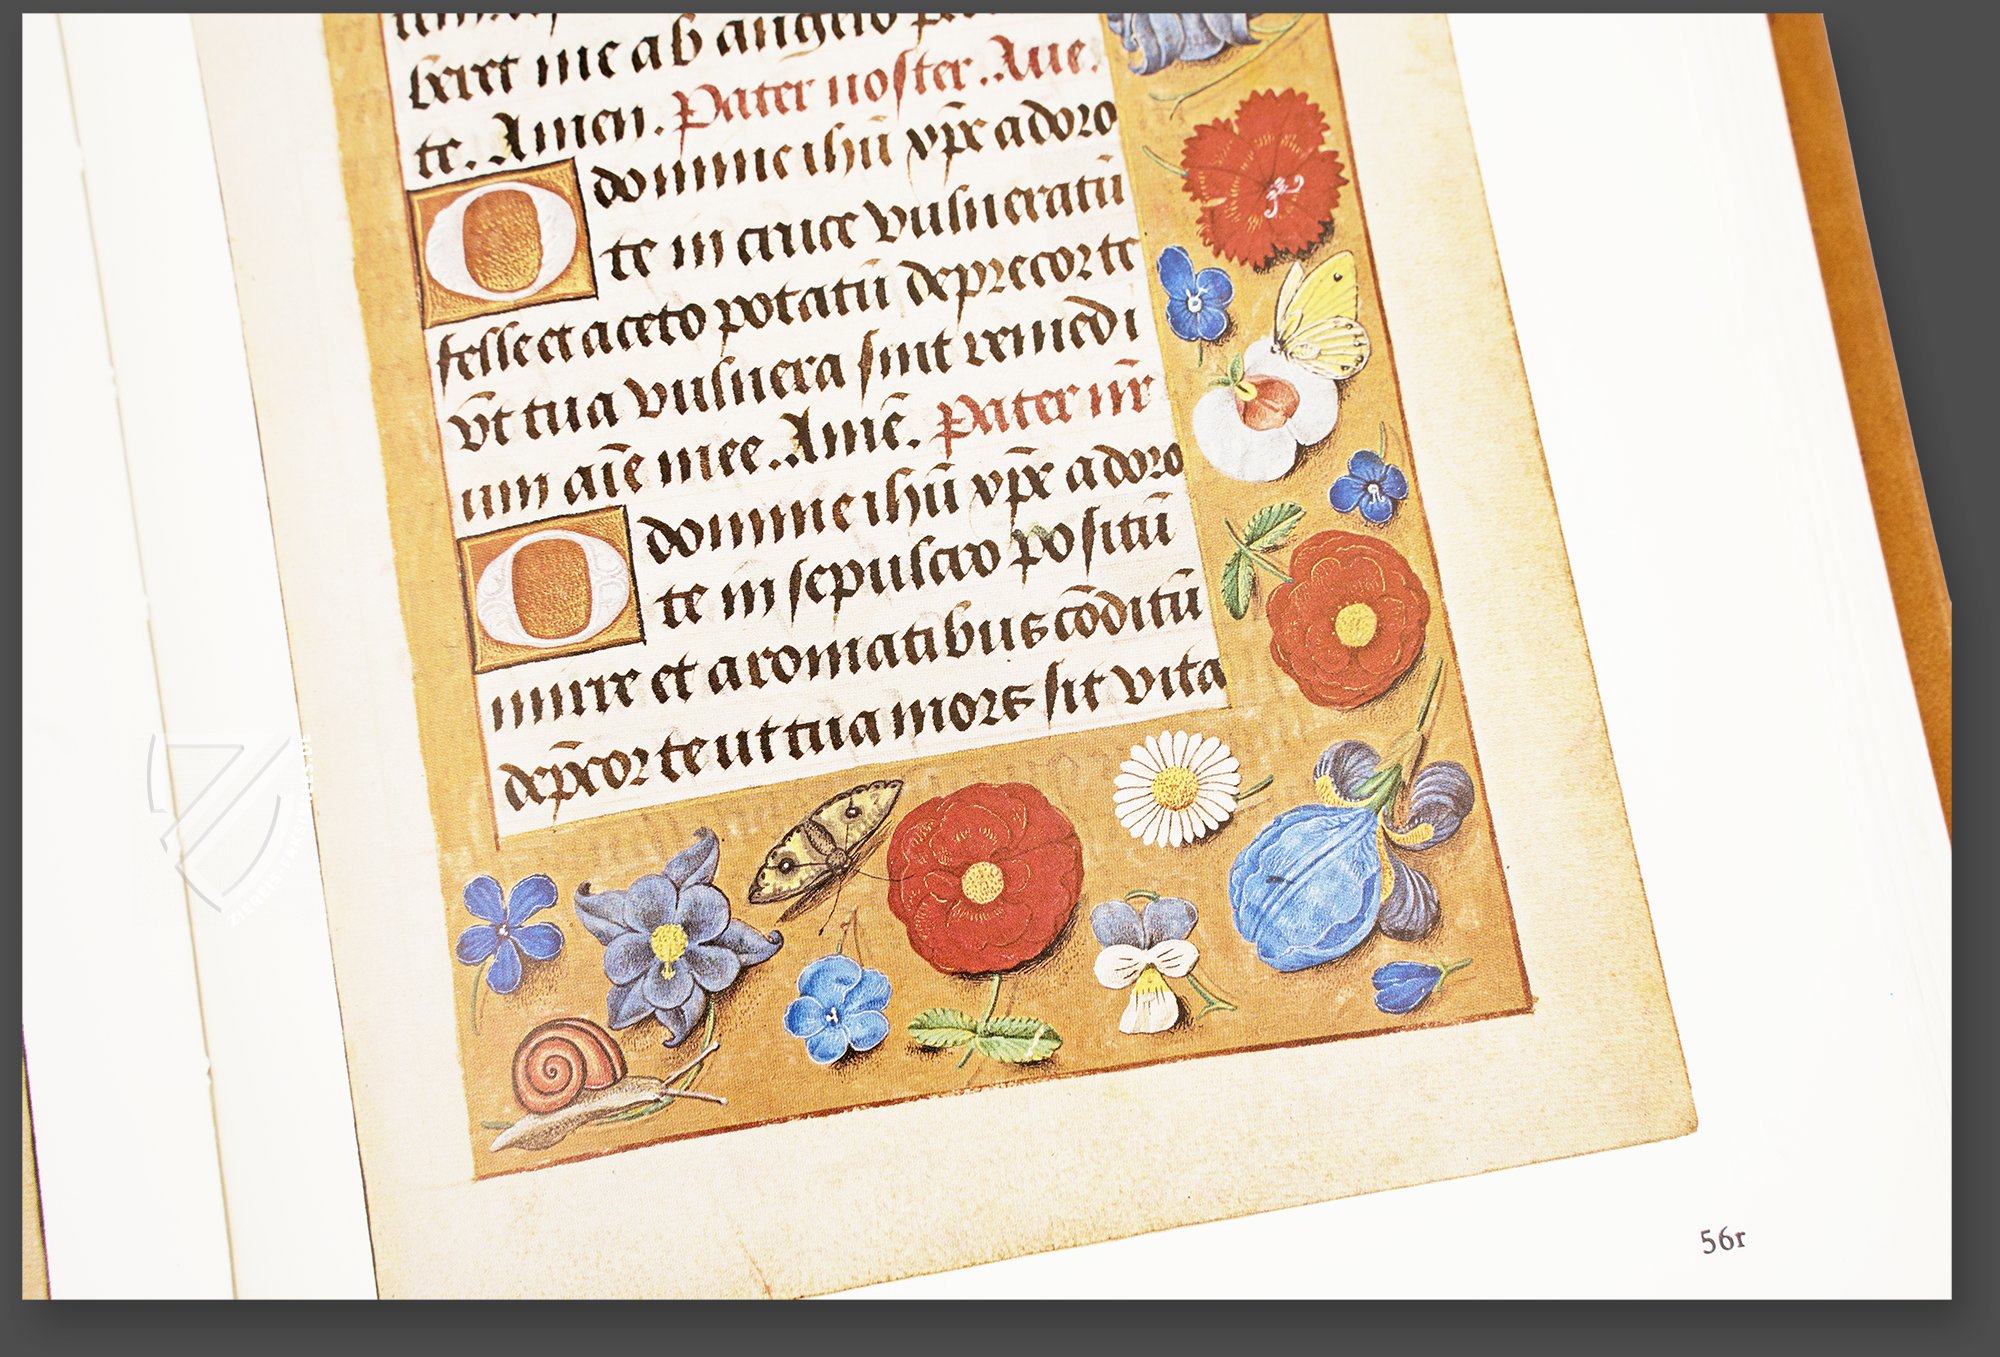 beret me ab angelo
te. Amen. Pater noster. Aue.
O domine ihū xp̄e adoro
te in cruce vulneratū
felle et aceto potatū deprecor te
vt tua vulnera sint remedi
um aīe mee. Amē. Pater nr̄
O domine ihū xp̄e adoro
te in sepulcro positū
mirre et aromatibus cōditū
dep̄cor te ut tua mors sit vita
56r